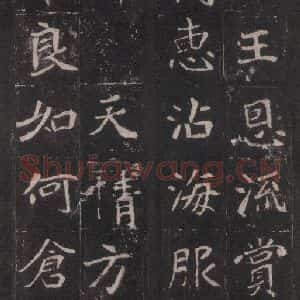 王恩流賞
惠沾海服
天情方
良如何倉
Shufawang.CN